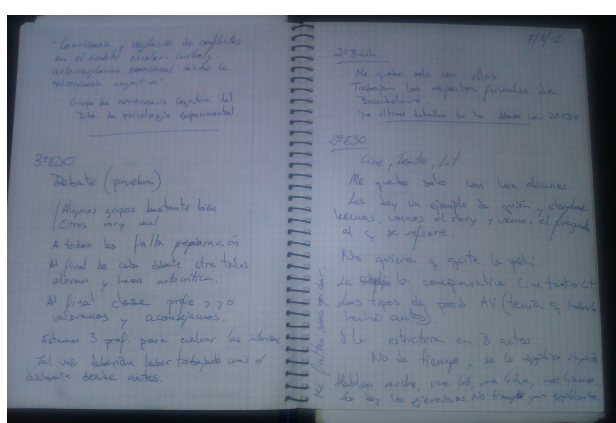 "Comunicación y regulación de conflictos
en el ámbito escolar: control y
autorregulación emocional desde la
neurociencia cognitiva".
Grupo de neurociencia cognitiva del
Dpto. de psicología experimental.
3º ESO
Debate (prueba)
Algunos grupos bastante bien
Otros muy mal
A todos les falla preparación
Al final de cada debate otre todos
valoran y hacen autocrítica.
Al final clase profe >>0
valoramos y aconsejamos.
Estamos 3 prof. para evaluar las
Tal vez deberían haber trabajado más el
debate desde antes.
7/5/12
2º Bach.
Me quedo solo con ellos.
Trabajan los aspectos formales de
Baudelaire.
Yo últimos detalles de la clase con 2º ESO
2º ESO
Cine, Teatro, Lit
Me quedo solo con los alumnos.
Les doy un ejemplo de guión y
leemos, vemos el story y vemos el fragmento
al q se refiere
No quieren q quite la peli.
La comparativa Cine teatro Lit
Los tipos de prod. AV (tenía q haberlo
hecho antes).
Y la estructura en 3 actos.
No da tiempo, se lo explico rápido
Hablan mucho, me lío, me
Les doy los ejercicios. No tiempo para explicarlos.
Me faltan